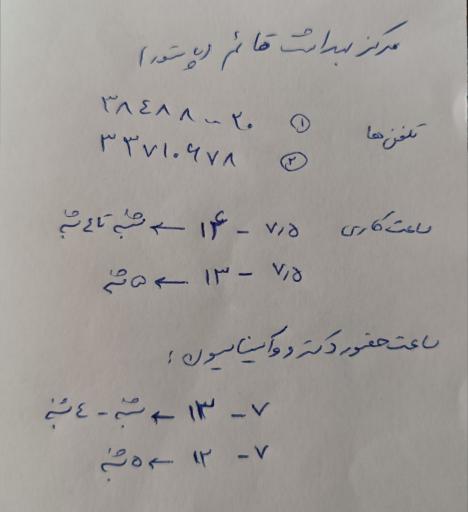 مرکز بهداشت قائم (پاستور)
تلفن ها ① ۳۸٤۸۸۰۰۲۰
② ۳۳۷۱۰۶۷۸
ساعت کاری ۷٫۵ - ۱۴ ← شنبه تا ٤ شنبه
۷٫۵ - ۱۳ ← ۵ شنبه
ساعت حضور دکتر و واکسیناسیون :
۷ - ۱۳ ← شنبه - ٤ شنبه
۷ - ۱۲ ← ۵ شنبه